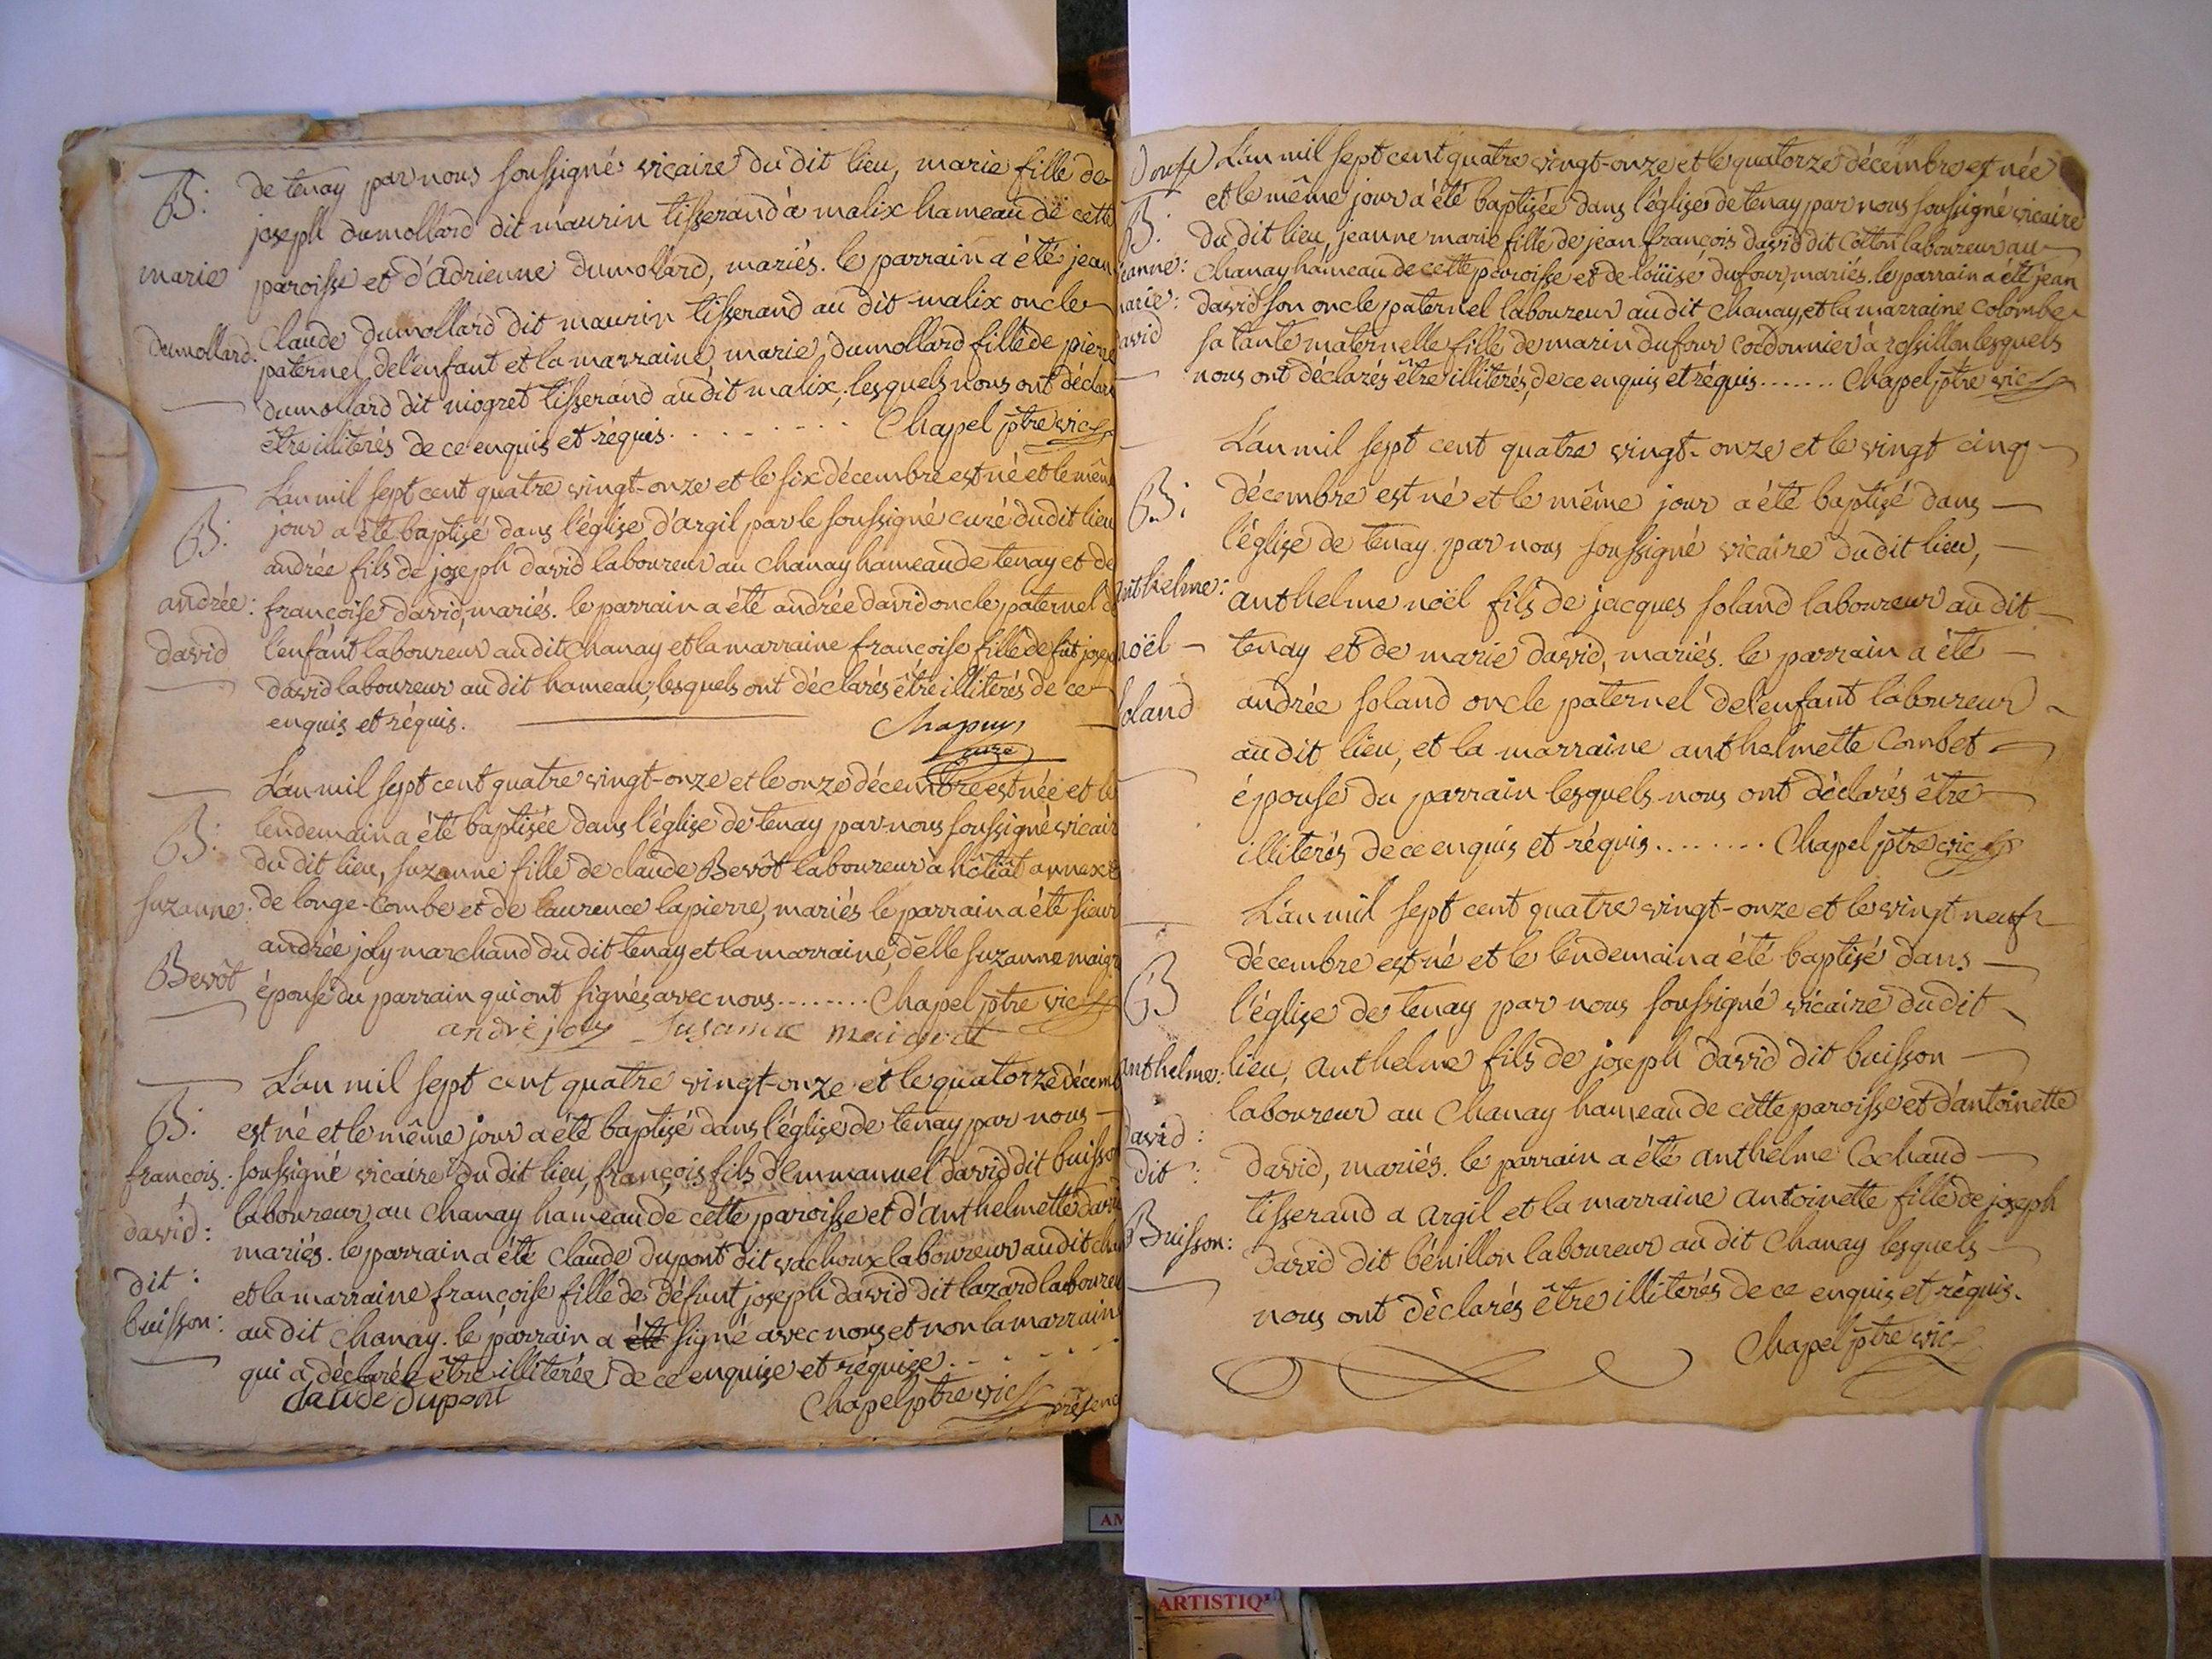 B: de tenay par nous soussigné vicaire du dit lieu, marie fille de
joseph dumollard dit maurin tisserand à malix hameau de cette
marie paroisse et d'adrienne dumollard, mariés. le parrain a été jean
Claude dumollard dit maurin tisserand au dit malix oncle
dumollard. paternel de l'enfant et la marraine marie dumollard fille de pierre
dumollard dit niogret tisserand au dit malix, lesquels nous ont déclaré
être illiterés de ce enquis et réquis. . . . . . . . . Chapel ptre vic
L'an mil sept cent quatre vingt-onze et le six décembre est né et le même
B: jour a été baptisé dans l'église d'argil par le soussigné curé du dit lieu
andrée fils de joseph david laboureur au chanay hameau de tenay et de
andrée: françoise david, mariés. le parrain a été andrée david oncle paternel de
david l'enfant laboureur au dit chanay et la marraine françoise fille de fût joseph
david laboureur au dit hameau, lesquels ont déclarés être illiterés de ce
enquis et réquis. Chapuy
curé
L'an mil sept cent quatre vingt-onze et le onze décembre est née et le
B: lendemain a été baptisée dans l'église de tenay par nous soussigné vicaire
du dit lieu, suzanne fille de claude Bevôt laboureur à hôtiat annexe
suzanne: de longe-Combe et de laurence lapierre, mariés le parrain a été sieur
andrée joly marchand du dit tenay et la marraine, d'elle suzanne maigr
Bevôt épouse du parrain qui ont signés avec nous........ Chapel ptre vic
andré joly Susanne maigret
L'an mil sept cent quatre vingt-onze et le quatorze décemb
B: est né et le même jour a été baptisé dans l'église de tenay par nous
francois: soussigné vicaire du dit lieu, françois fils d'Emmanuel david dit buisson
david: laboureur au Chanay hameau de cette paroisse et d'anthelmette david
mariés. le parrain a été Claude dupont dit vachoux laboureur au dit cha
dit: et la marraine françoise fille de défunt joseph david dit lazard laboureur
buisson: au dit chanay. le parrain a été signé avec nous et non la marraine
qui a déclarée être illiterée de ce enquise et réquise. . . . . .
Claude dupont Chapel ptre vic présence
L'an mil sept cent quatre vingt-onze et le quatorze décembre est née
B: et le même jour a été baptisée dans l'église de tenay par nous soussigné vicaire
du dit lieu, jeanne marie fille de jean françois david dit Cotton laboureur au
jeanne: Chanay hameau de cette paroisse et de loüise dufour, mariés. le parrain a été jean
marie: david son oncle paternel laboureur au dit chanay, et la marraine Colombe
david sa tante maternelle fille de marin dufour cordonnier à rossillon lesquels
nous ont déclarés être illiterés, de ce enquis et réquis....... Chapel ptre vic
L'an mil sept cent quatre vingt-onze et le vingt cinq
B: décembre est né et le même jour a été baptisé dans
l'église de tenay par nous soussigné vicaire du dit lieu,
anthelme: anthelme noël fils de jacques soland laboureur au dit
noël tenay et de marie david, mariés. le parrain a été
soland andrée soland oncle paternel de l'enfant laboureur
au dit lieu, et la marraine anthelmette Combet
épouse du parrain lesquels nous ont déclarés être
illiterés de ce enquis et réquis........ Chapel ptre vic
L'an mil sept cent quatre vingt-onze et le vingt neuf
décembre est né et le lendemain a été baptisé dans
B l'église de tenay par nous soussigné vicaire du dit
anthelme: lieu, anthelme fils de joseph david dit buisson
laboureur au Chanay hameau de cette paroisse et d'antoinette
david: dit: david, mariés. le parrain a été anthelme Cochaud
tisserand a argil et la marraine antoinette fille de joseph
Buisson: david dit bénillon laboureur au dit Chanay lesquels
nous ont déclarés être illiterés de ce enquis et réquis.
Chapel ptre vic
AM
ARTISTIQ